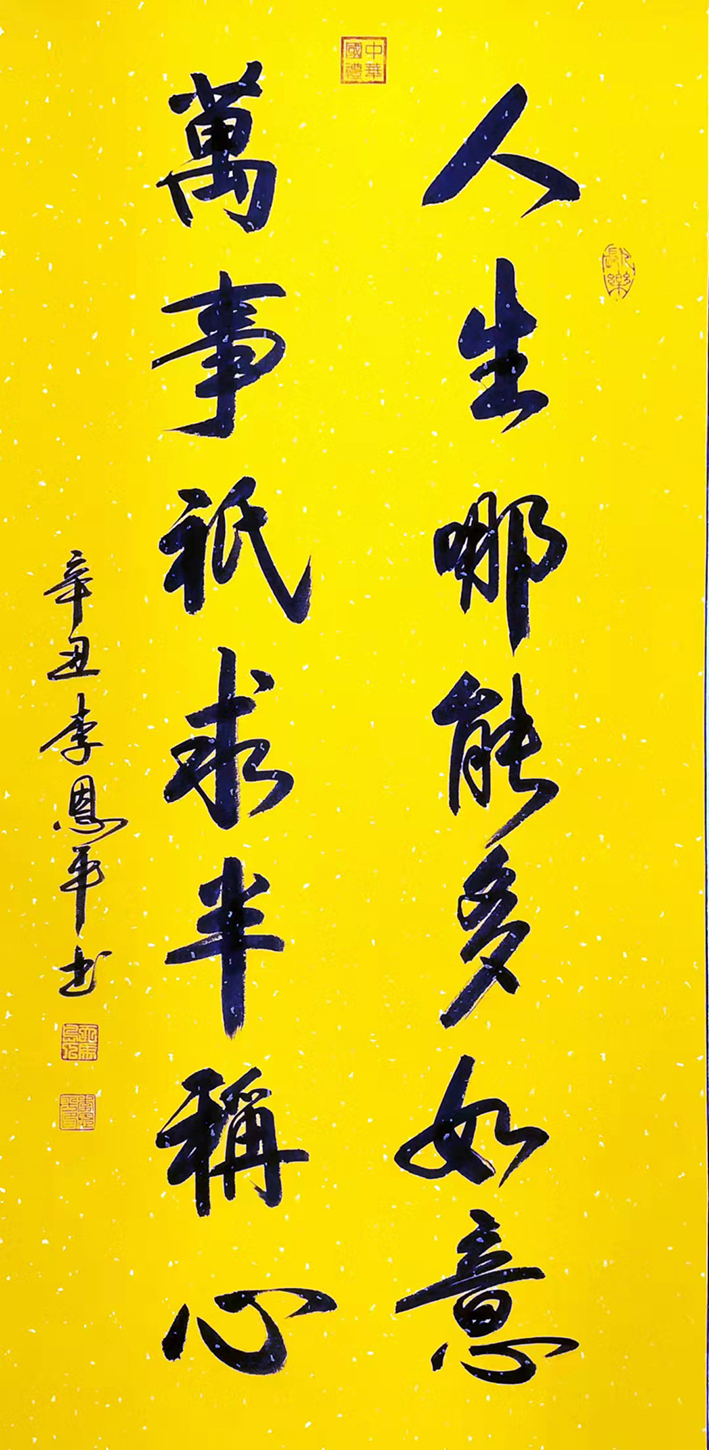 人生哪能多如意
萬事祇求半稱心
辛丑李恩平书
中華國禮
長樂